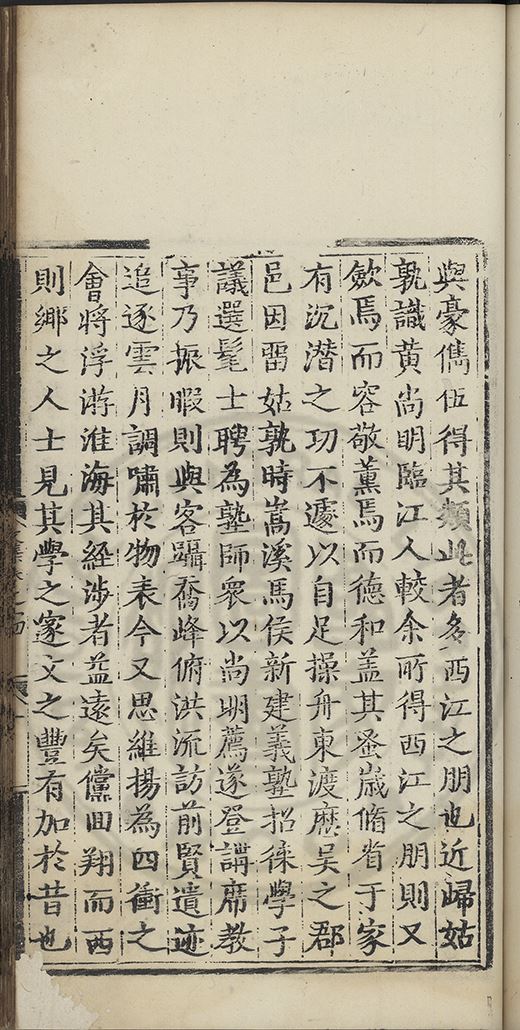 與豪儁伍得其類此者多西江之朋也近歸姑
孰識黃尚明臨江人較余所得西江之朋則又
歛焉而容敬薰焉而德和盖其蚤歲脩省于家
有沉潛之功不遽以自足操舟東渡歷吴之郡
邑因畱姑孰時嵩溪馬侯新建義塾招徠學子
議選髦士聘為塾師衆以尚明薦遂登講席教
事乃振暇則與客躡喬峰俯洪流訪前賢遺迹
追逐雲月調嘯於物表今又思維揚為四衝之
會將浮游淮海其經涉者益逺矣儻回翔而西
則郷之人士見其學之邃文之豐有加於昔也